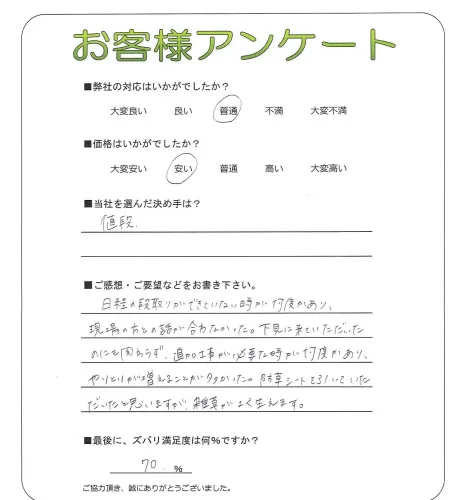 お客様アンケート
■弊社の対応はいかがでしたか？
大変良い 良い 普通 不満 大変不満
■価格はいかがでしたか？
大変安い 安い 普通 高い 大変高い
■当社を選んだ決め手は？
値段.
■ご感想・ご要望などをお書き下さい。
日程の段取りができていない時が何度かあり、
現場の方との話が合わなかった。下見に来ていただいた
のにも関わらず、追加工事が必要な時が何度かあり、
やりとりが増えることが多かった。防草シートを引いていた
だいたと思いますが、雑草がよく生えます。
■最後に、ズバリ満足度は何%ですか？
70 %
ご協力頂き、誠にありがとうございました。